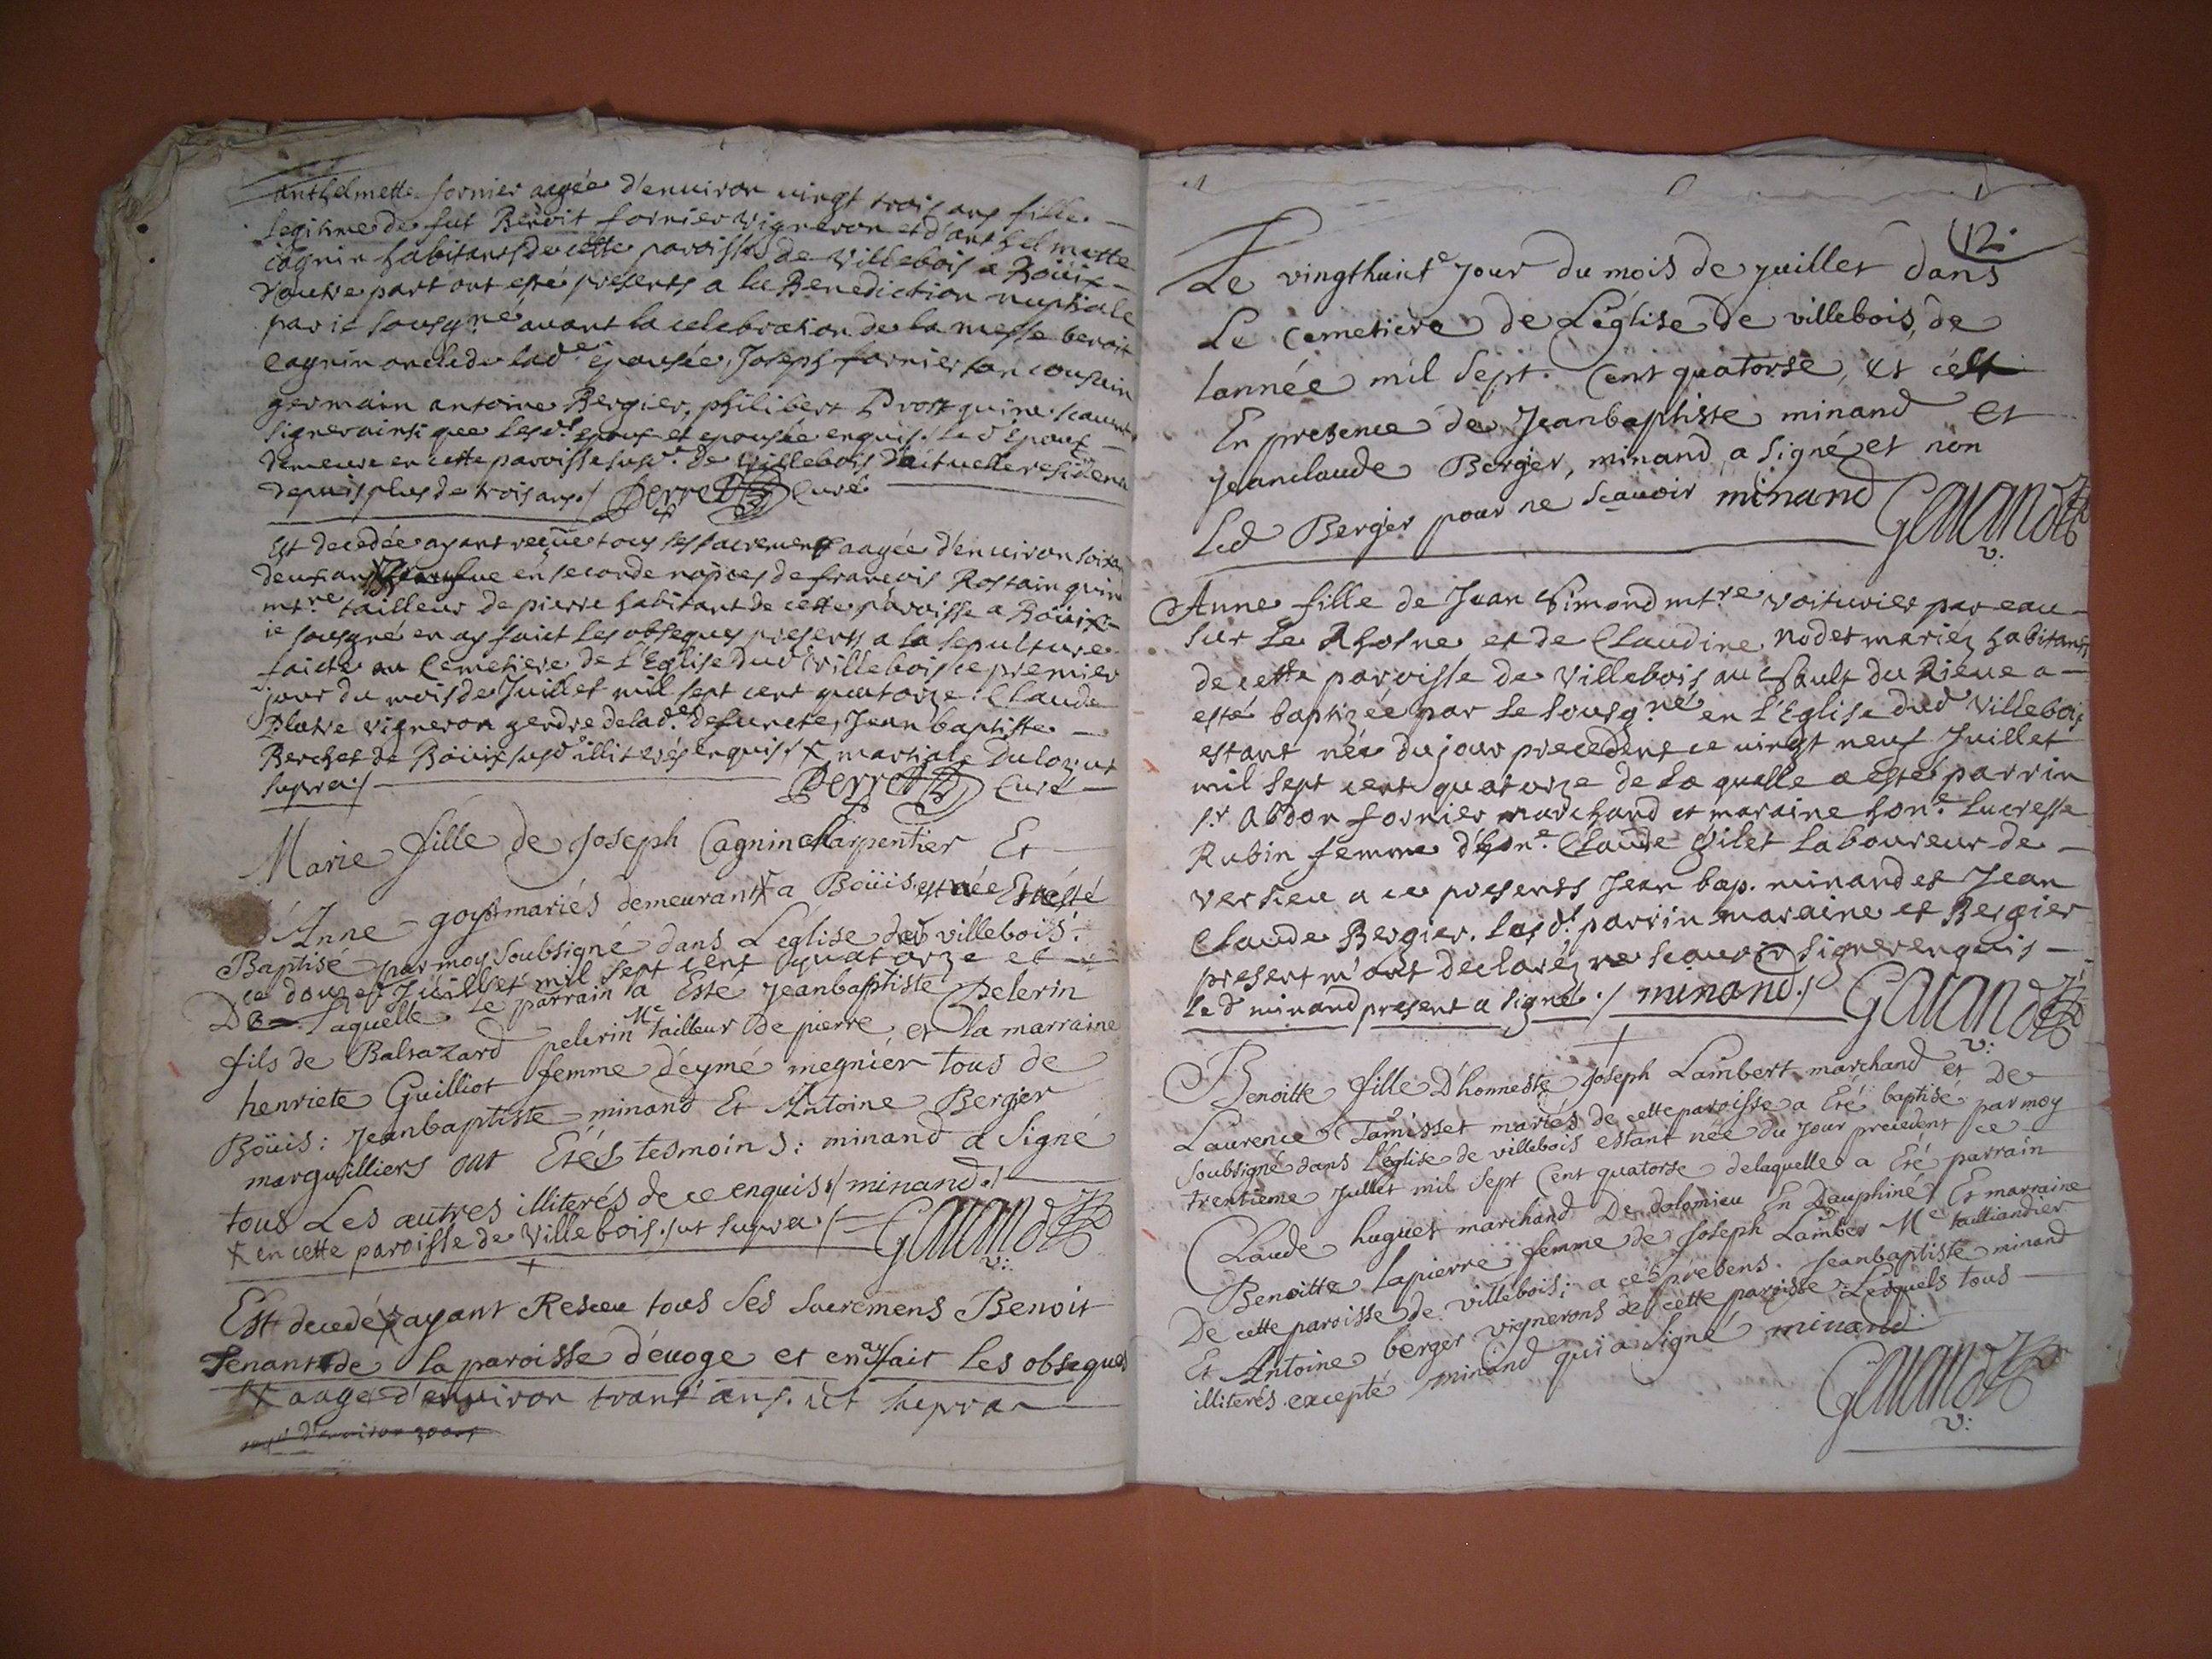 anthelmette fornier aagée d'enuiron uingt trois ans fille
legitime de fut Benoit fornier Vigneron et d'anthelmette
cagnin habitants de cette paroisse de Villebois a Boüix
d'autre part ont esté presents a la Benediction nuptiale
par ie sousgné auant la celebration de la messe benoit
cagnin oncle de lad epousée, Joseph fornier son cousin
germain antoine Bergier, philibert Prost qui ne scauent
signer ainsi que lesds epoux et epousée enquis. le d Epoux
demeure en cette paroisse susd de Villebois d'actuelle residena
depuis plus de trois ans ./ Perret Curé
Est decedée ayant reçeue tous ses sacrements aagée d'enuiron soixan
deux ans en seconde nopces de françois Rostain quin
mtre tailleur de pierre habitant de cette paroisse a Boüix
ie sousgné en ay faict les obseques presents a la sepulture
faicte au Cemetiere de l'Eglise dud Villebois ce premier
jour du mois de Juillet mill sept cent quatorze Claude
Platre vigneron gendre de lad defuncte, Jean baptiste
Berchet de Boüix susd illiterés enquis. martiale Dulorut
supra ./ Perret Curé
Marie fille de Joseph Cagnin charpentier Et
d'Anne goyet mariés demeurants a Boüis est née Et a esté
Baptisé par moy Soubsigné dans L'eglise dud villebois.
ce douze Juillet mil sept cent quatorze et
De Laquelle Le parrain a Esté Jeanbaptiste Pelerin
fils de Balsazard pelerin Me tailleur de pierre et La marraine
henriete Guilliot femme d'eymé megnier tous de
Boüis: Jeanbaptiste minand Et Antoine Berger
marguilliers ont Etés tesmoins: minand a Signé
tous Les autres illiterés de ce enquis ./ minand ./
x en cette paroisse de Villebois. ut supra ./ Gavand
v:
Est decedé x ayant Resceu tous Ses Sacremens Benoit
Tenant de la paroisse d'euoge et en ay fait Les obseques
x aagé d'enuiron trant' ans. ut supra
12.
Le vingthuicte Jour du mois de juillet dans
Le Cemetiere de L'église de villebois, de
lannée mil Sept Cent quatorse, et c'est
En presence de Jeanbaptiste minand Et
Jeanclaude Berger, minand a Signé et non
Led Berger pour ne Scauoir minand Gavand
v:
Anne fille de Jean Simond mtre voiturier par eau
sur Le Rhosne et de Claudine nodet mariéz habitants
de cette paroisse de Villebois au Sault du Rieue a
esté baptizée par le sousgné en l'Eglise dud Villebois
estant née du jour precedent ce uingt neuf Juillet
mil sept cent quatorze de la quelle a esté parrin
sr Abdon fornier marchand et maraine hone Lucresse
Rubin femme d'hone Claude Gilet Laboureur de
versieu a ce presents Jean bap. minand et Jean
Claude Bergier. Lesds parrin maraine et Bergier
present m'ont declaréz ne scauoir signer enquis
le d minand present a signé ./ minand ./ Gavand
v:
Benoitte fille D'honneste Joseph Lambert marchand et De
Laurence Tamisset mariés de cette paroisse a Eté baptisé par moy
Soubsigné dans L'église de villebois estant née du jour precedent ce
trentieme Jullet mil Sept Cent quatorse de laquelle a Eté parrain
Claude huguet marchand De dolomieu En Dauphiné, Et marraine
Benoitte Lapierre femme de Joseph Lamber Me tailliandier
De cette paroisse de villebois; a ces presens. Jeanbaptiste minand
Et Antoine berger vignerons de cette paroisse Lesquels tous
illiterés excepté minand qui a Signé minand.
Gavand
v: